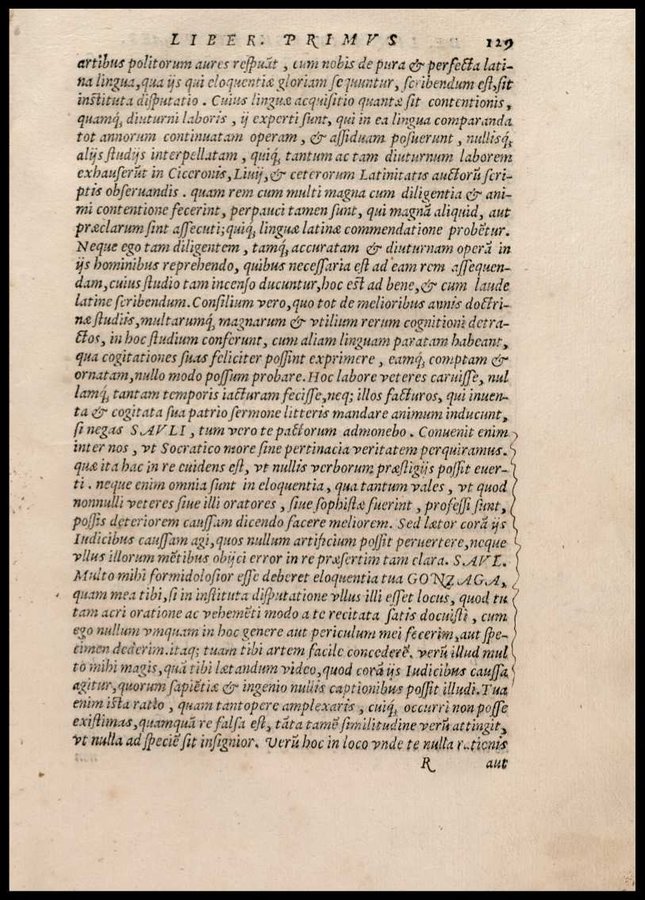 LIBER. PRIMVS 129
artibus politorum aures respuãt, cum nobis de pura & perfecta lati-
na lingua, qua ijs qui eloquentiæ gloriam sequuntur, scribendum est, sit
instituta disputatio. Cuius linguæ acquisitio quantæ sit contentionis,
quamq́; diuturni laboris, ij experti sunt, qui in ea lingua comparanda
tot annorum continuatam operam, & assiduam posuerunt, nullisq́;
alijs studijs interpellatam, quiq́; tantum ac tam diuturnum laborem
exhauserũt in Ciceronis, Liuij, & ceterorum Latinitatis auctorũ scri-
ptis obseruandis. quam rem cum multi magna cum diligentia & ani-
mi contentione fecerint, perpauci tamen sunt, qui magnã aliquid, aut
præclarum sint assecuti; quiq́; linguæ latinæ commendatione probẽtur.
Neque ego tam diligentem, tamq́; accuratam & diuturnam operã in
ijs hominibus reprehendo, quibus necessaria est ad eam rem assequen-
dam, cuius studio tam incenso ducuntur, hoc est ad bene, & cum laude
latine scribendum. Consilium vero, quo tot de melioribus annis doctri-
næ studiis, multarumq́; magnarum & vtilium rerum cognitioni detra-
ctos, in hoc studium conferunt, cum aliam linguam paratam habeant,
qua cogitationes suas feliciter possint exprimere, eamq́; comptam &
ornatam, nullo modo possum probare. Hoc labore veteres caruisse, nul
lamq́; tantam temporis iacturam fecisse, neq; illos facturos, qui inuen-
ta & cogitata sua patrio sermone litteris mandare animum inducunt,
si negas SAVLI, tum vero te pactorum admonebo. Conuenit enim
inter nos, vt Socratico more sine pertinacia veritatem perquiramus.
quæ ita hac in re euidens est, vt nullis verborum præstigijs possit euer-
ti. neque enim omnia sunt in eloquentia, qua tantum vales, vt quod
nonnulli veteres siue illi oratores, siue sophistæ fuerint, professi sunt,
possis deteriorem caussam dicendo facere meliorem. Sed lætor corã ijs
Iudicibus caussam agi, quos nullum artificium possit peruertere, neque
vllus illorum mẽtibus obijci error in re præsertim tam clara. SAVL.
Multo mihi formidolosior esse deberet eloquentia tua GONZAGA,
quam mea tibi, si in instituta disputatione vllus illi esset locus, quod tu
tam acri oratione ac vehemẽti modo a te recitata satis docuisti, cum
ego nullum vmquam in hoc genere aut periculum mei fecerim, aut spe-
cimen dederim. itaq; tuam tibi artem facile concederẽ. verũ illud mul
to mihi magis, quã tibi lætandum video, quod corã ijs Iudicibus caussa
agitur, quorum sapiẽtiæ & ingenio nullis captionibus possit illudi. Tua
enim ista ratio, quam tantopere amplexaris, cuiq́; occurri non posse
existimas, quamquã re falsa est, tãta tamẽ similitudine verũ attingit,
vt nulla ad speciẽ sit insignior. Verũ hoc in loco vnde te nulla rationis
R aut